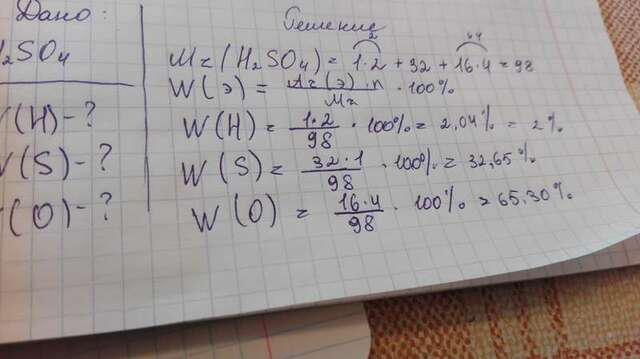 Дано:
H₂SO₄
W(H)-?
W(S)-?
W(O)-?
Решение
2 64
Mr(H₂SO₄) = 1·2 + 32 + 16·4 = 98
W(э) = Ar(э)·n / Mr · 100%
W(H) = 1·2 / 98 · 100% = 2,04% = 2%
W(S) = 32·1 / 98 · 100% = 32,65%
W(O) = 16·4 / 98 · 100% = 65.30%